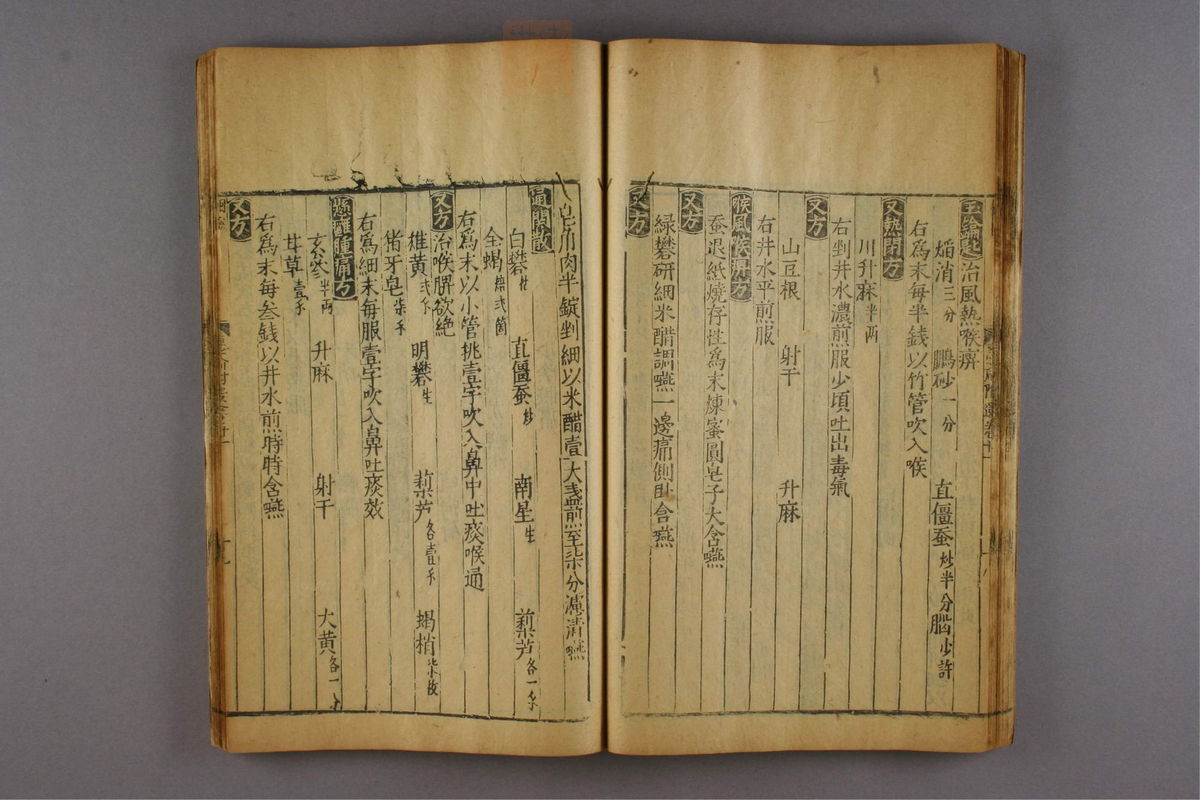 玉鑰匙 治風熱喉痹
焔消三分 鵬砂一分 直僵蚕炒半分 腦少許
右為末每半錢以竹管吹入喉
又熱閉方
川升麻半两
右剉井水濃煎服少頃吐出毒氣
又方
山豆根 射干 升麻
右井水平煎服
喉風喉痹方
蚕退紙燒存性為末煉蜜圓皂子大含嚥
又方
緑礬研細米醋調嚥一邊痛側卧含嚥
又方
皂角肉半錠剉細以米醋壹大盞煎至柒分濾清嚥
通関散
白礬 直僵蚕炒 南星生 藜芦各一
全蝎 弍箇
右為末以小管挑壹字吹入鼻中吐痰喉通
又方 治喉脾欲絶
雄黄 明礬生 藜芦各壹 蝎梢柒枚
猪牙皂柒
右為細末每服壹字吹入鼻吐痰效
懸雍腫痛方
玄参半两 升麻 射干 大黄各一
甘草壹
右為末每叁錢以井水煎時時含嚥
又方